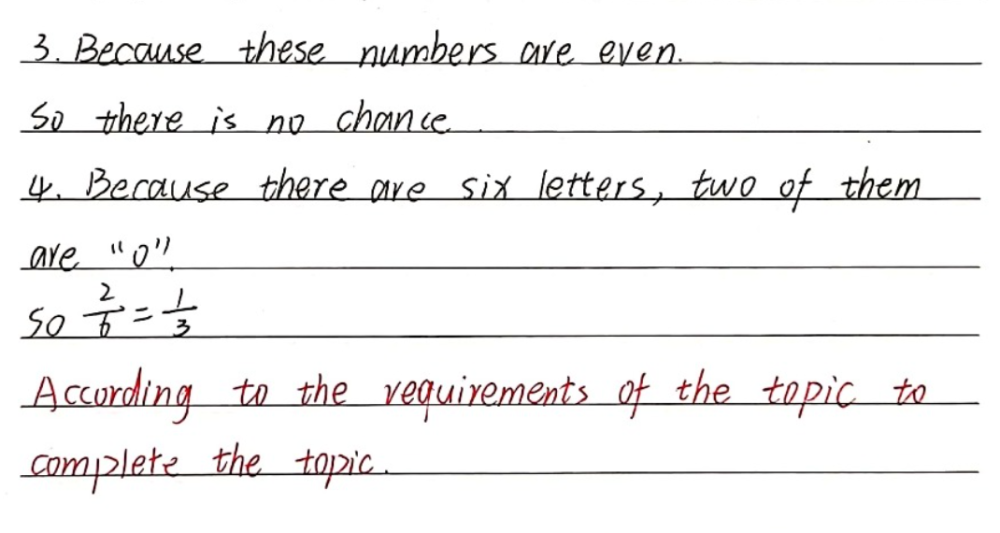 3. Because these numbers are even.
So there is no chance.
4. Because there are six letters, two of them
are "o".
So 2/6 = 1/3
According to the requirements of the topic to
complete the topic.